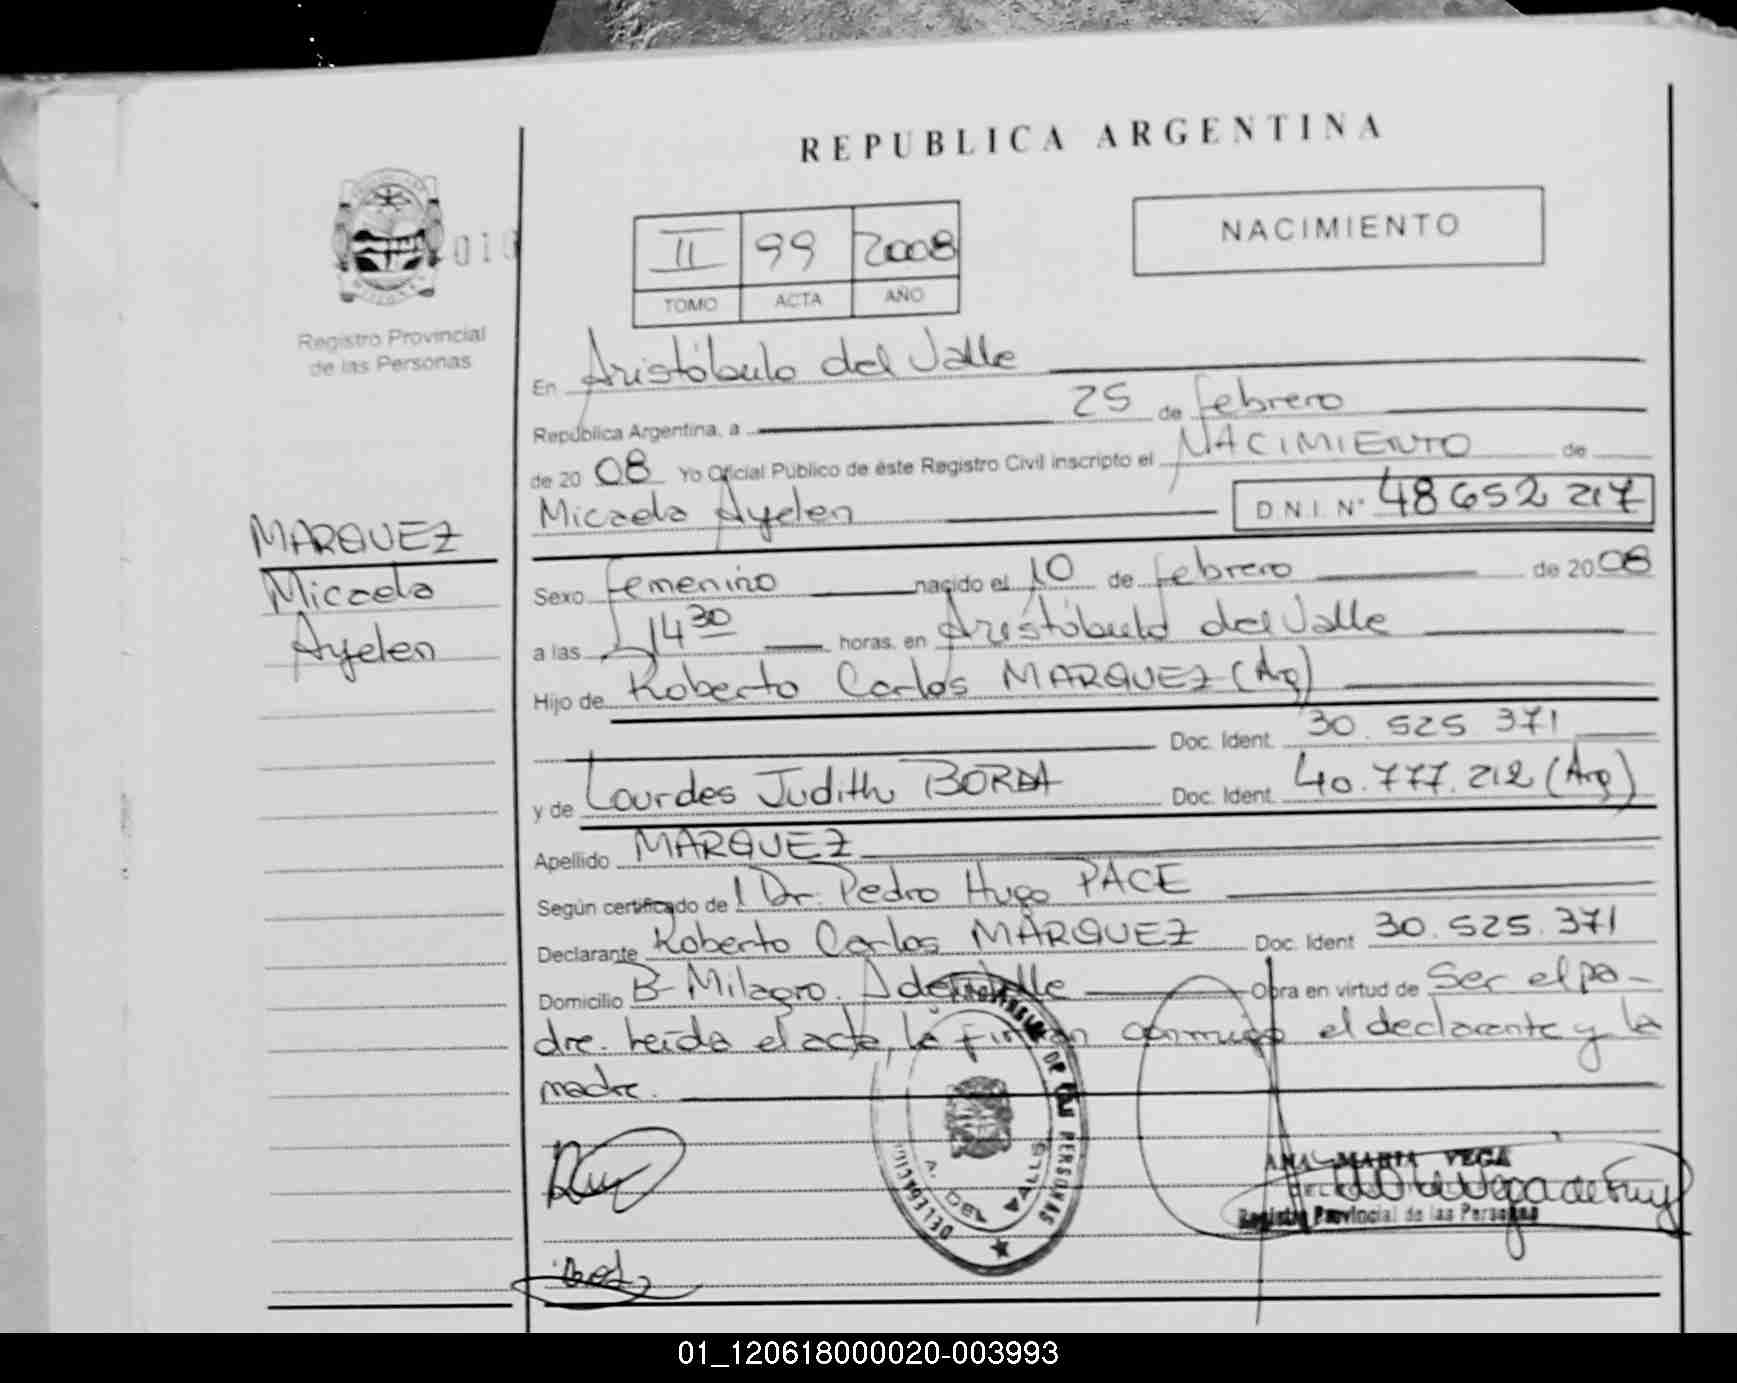 REPUBLICA ARGENTINA
010
Registro Provincial
de las Personas
NACIMIENTO
II 99 2008
TOMO ACTA AÑO
En Aristóbulo del Valle
República Argentina, a 25 de febrero
de 20 08 Yo Oficial Público de éste Registro Civil inscripto el NACIMIENTO de
Micaela Ayelen D.N.I. N° 48 652 217
MARQUEZ
Micaela
Ayelen
Sexo femenino nacido el 10 de febrero de 20 08
a las 14 30 horas, en Aristóbulo del Valle
Hijo de Roberto Carlos MARQUEZ (Arg)
Doc. Ident. 30.525.371
y de Lourdes Judith BORDA Doc. Ident. 40.777.212 (Arg)
Apellido MARQUEZ
Según certificado de l Dr. Pedro Hugo PACE
Declarante Roberto Carlos MARQUEZ Doc. Ident 30.525.371
Domicilio B- Milagro. A del Valle Obra en virtud de Ser el pa-
dre. Leída el acta, la firman conmigo el declarante y la
madre.
DE LAS PERSONAS
A. DEL VALLE
ANA MARIA VEGA
Registro Provincial de las Personas
01_120618000020-003993